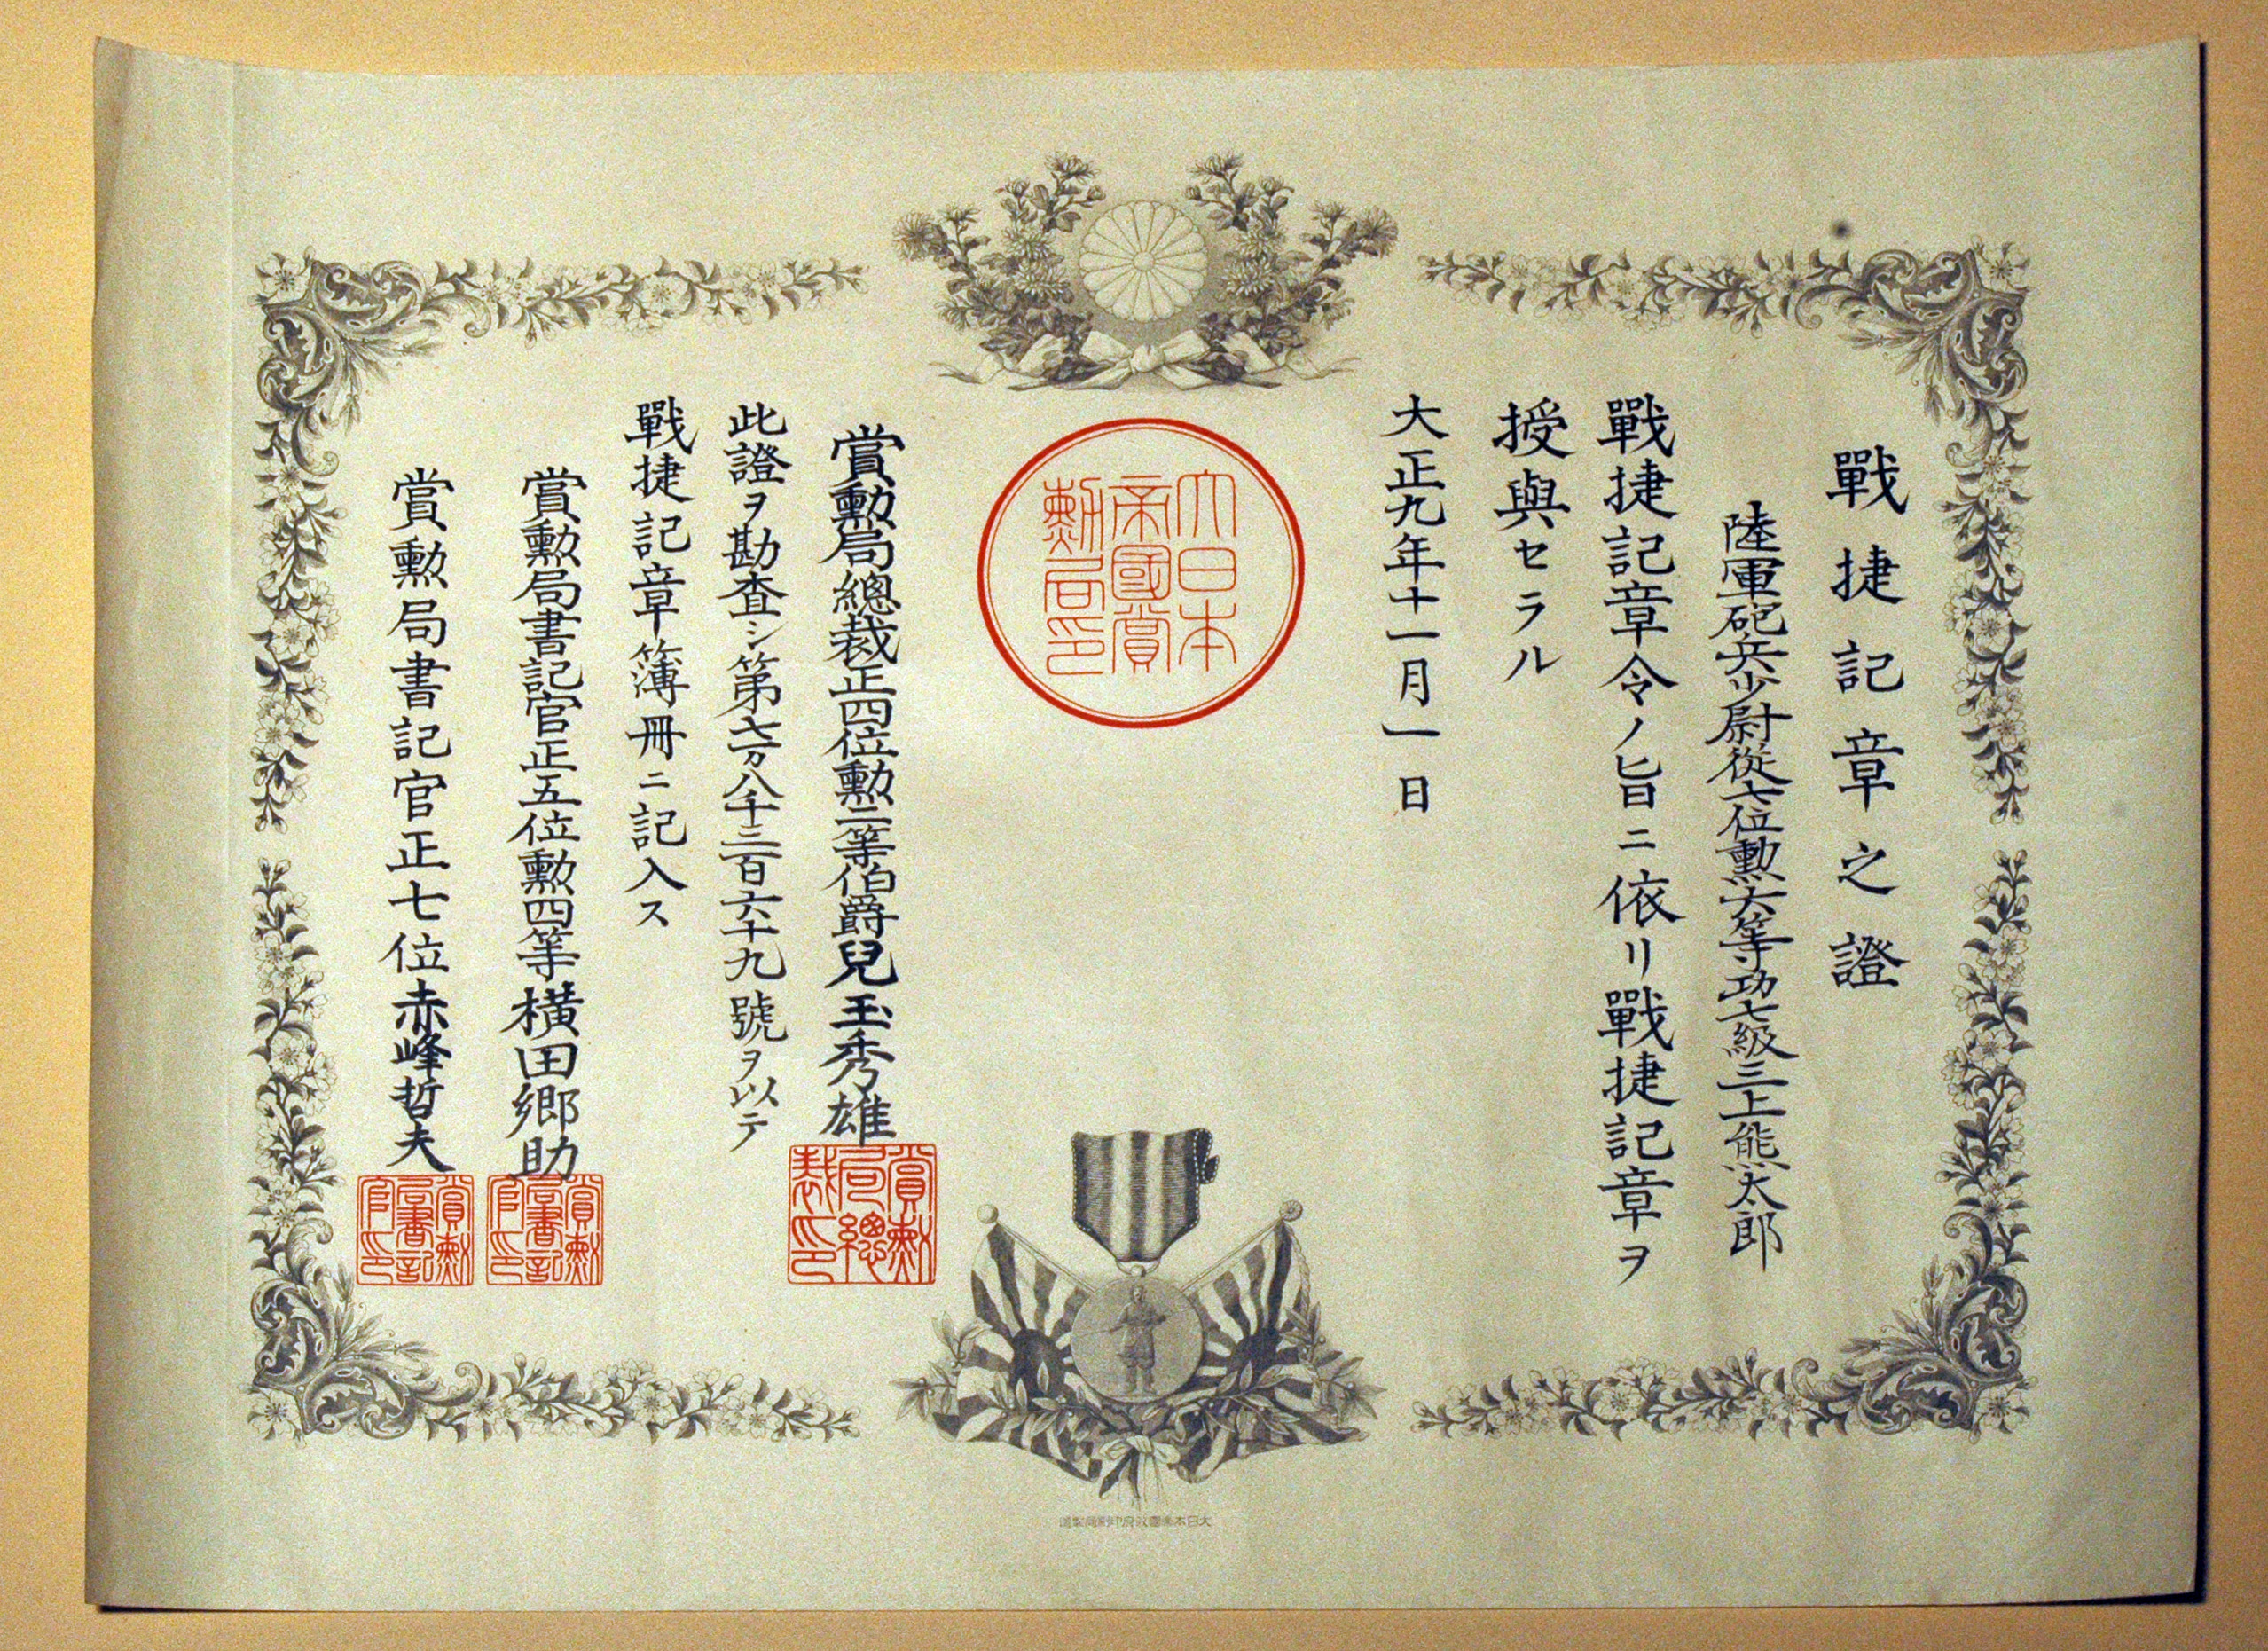 戰捷記章之證
陸軍砲兵少尉從七位勲六等功七級三上熊太郎
戰捷記章令ノ旨ニ依リ戰捷記章ヲ
授與セラル
大正九年十一月一日
大日本
帝國賞
勲局印
賞勲局總裁正四位勲二等伯爵兒玉秀雄
賞勲
局總
裁印
此證ヲ勘査シ第七万八千三百六十九號ヲ以テ
戰捷記章簿冊ニ記入ス
賞勲局書記官正五位勲四等横田郷助
賞勲
局書記
官印
賞勲局書記官正七位赤峰哲夫
賞勲
局書記
官印
大日本帝國政府印刷局製造